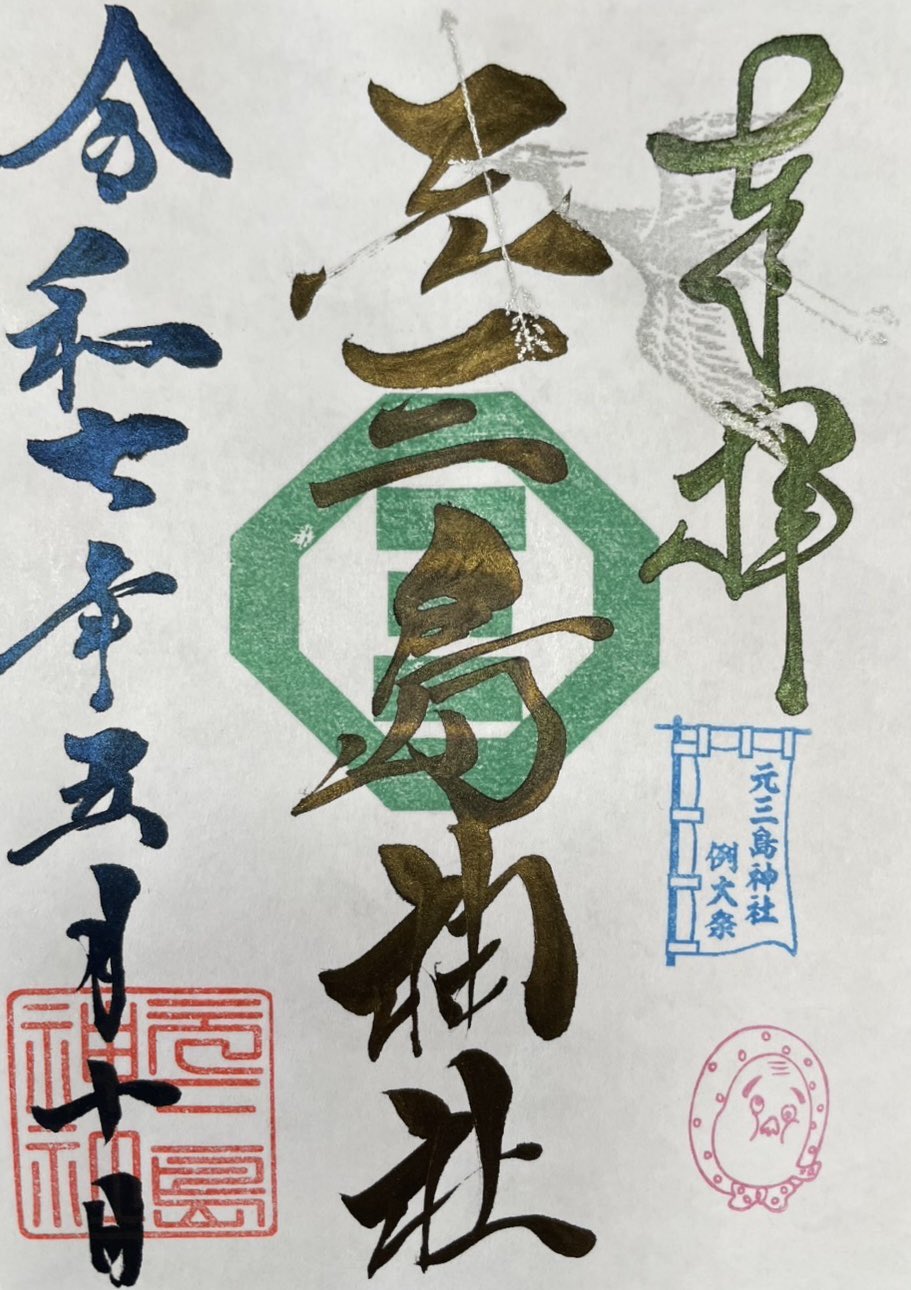 奉拝
元三島神社
例大祭
元三島神社
令和七年五月十日
元三島
神社